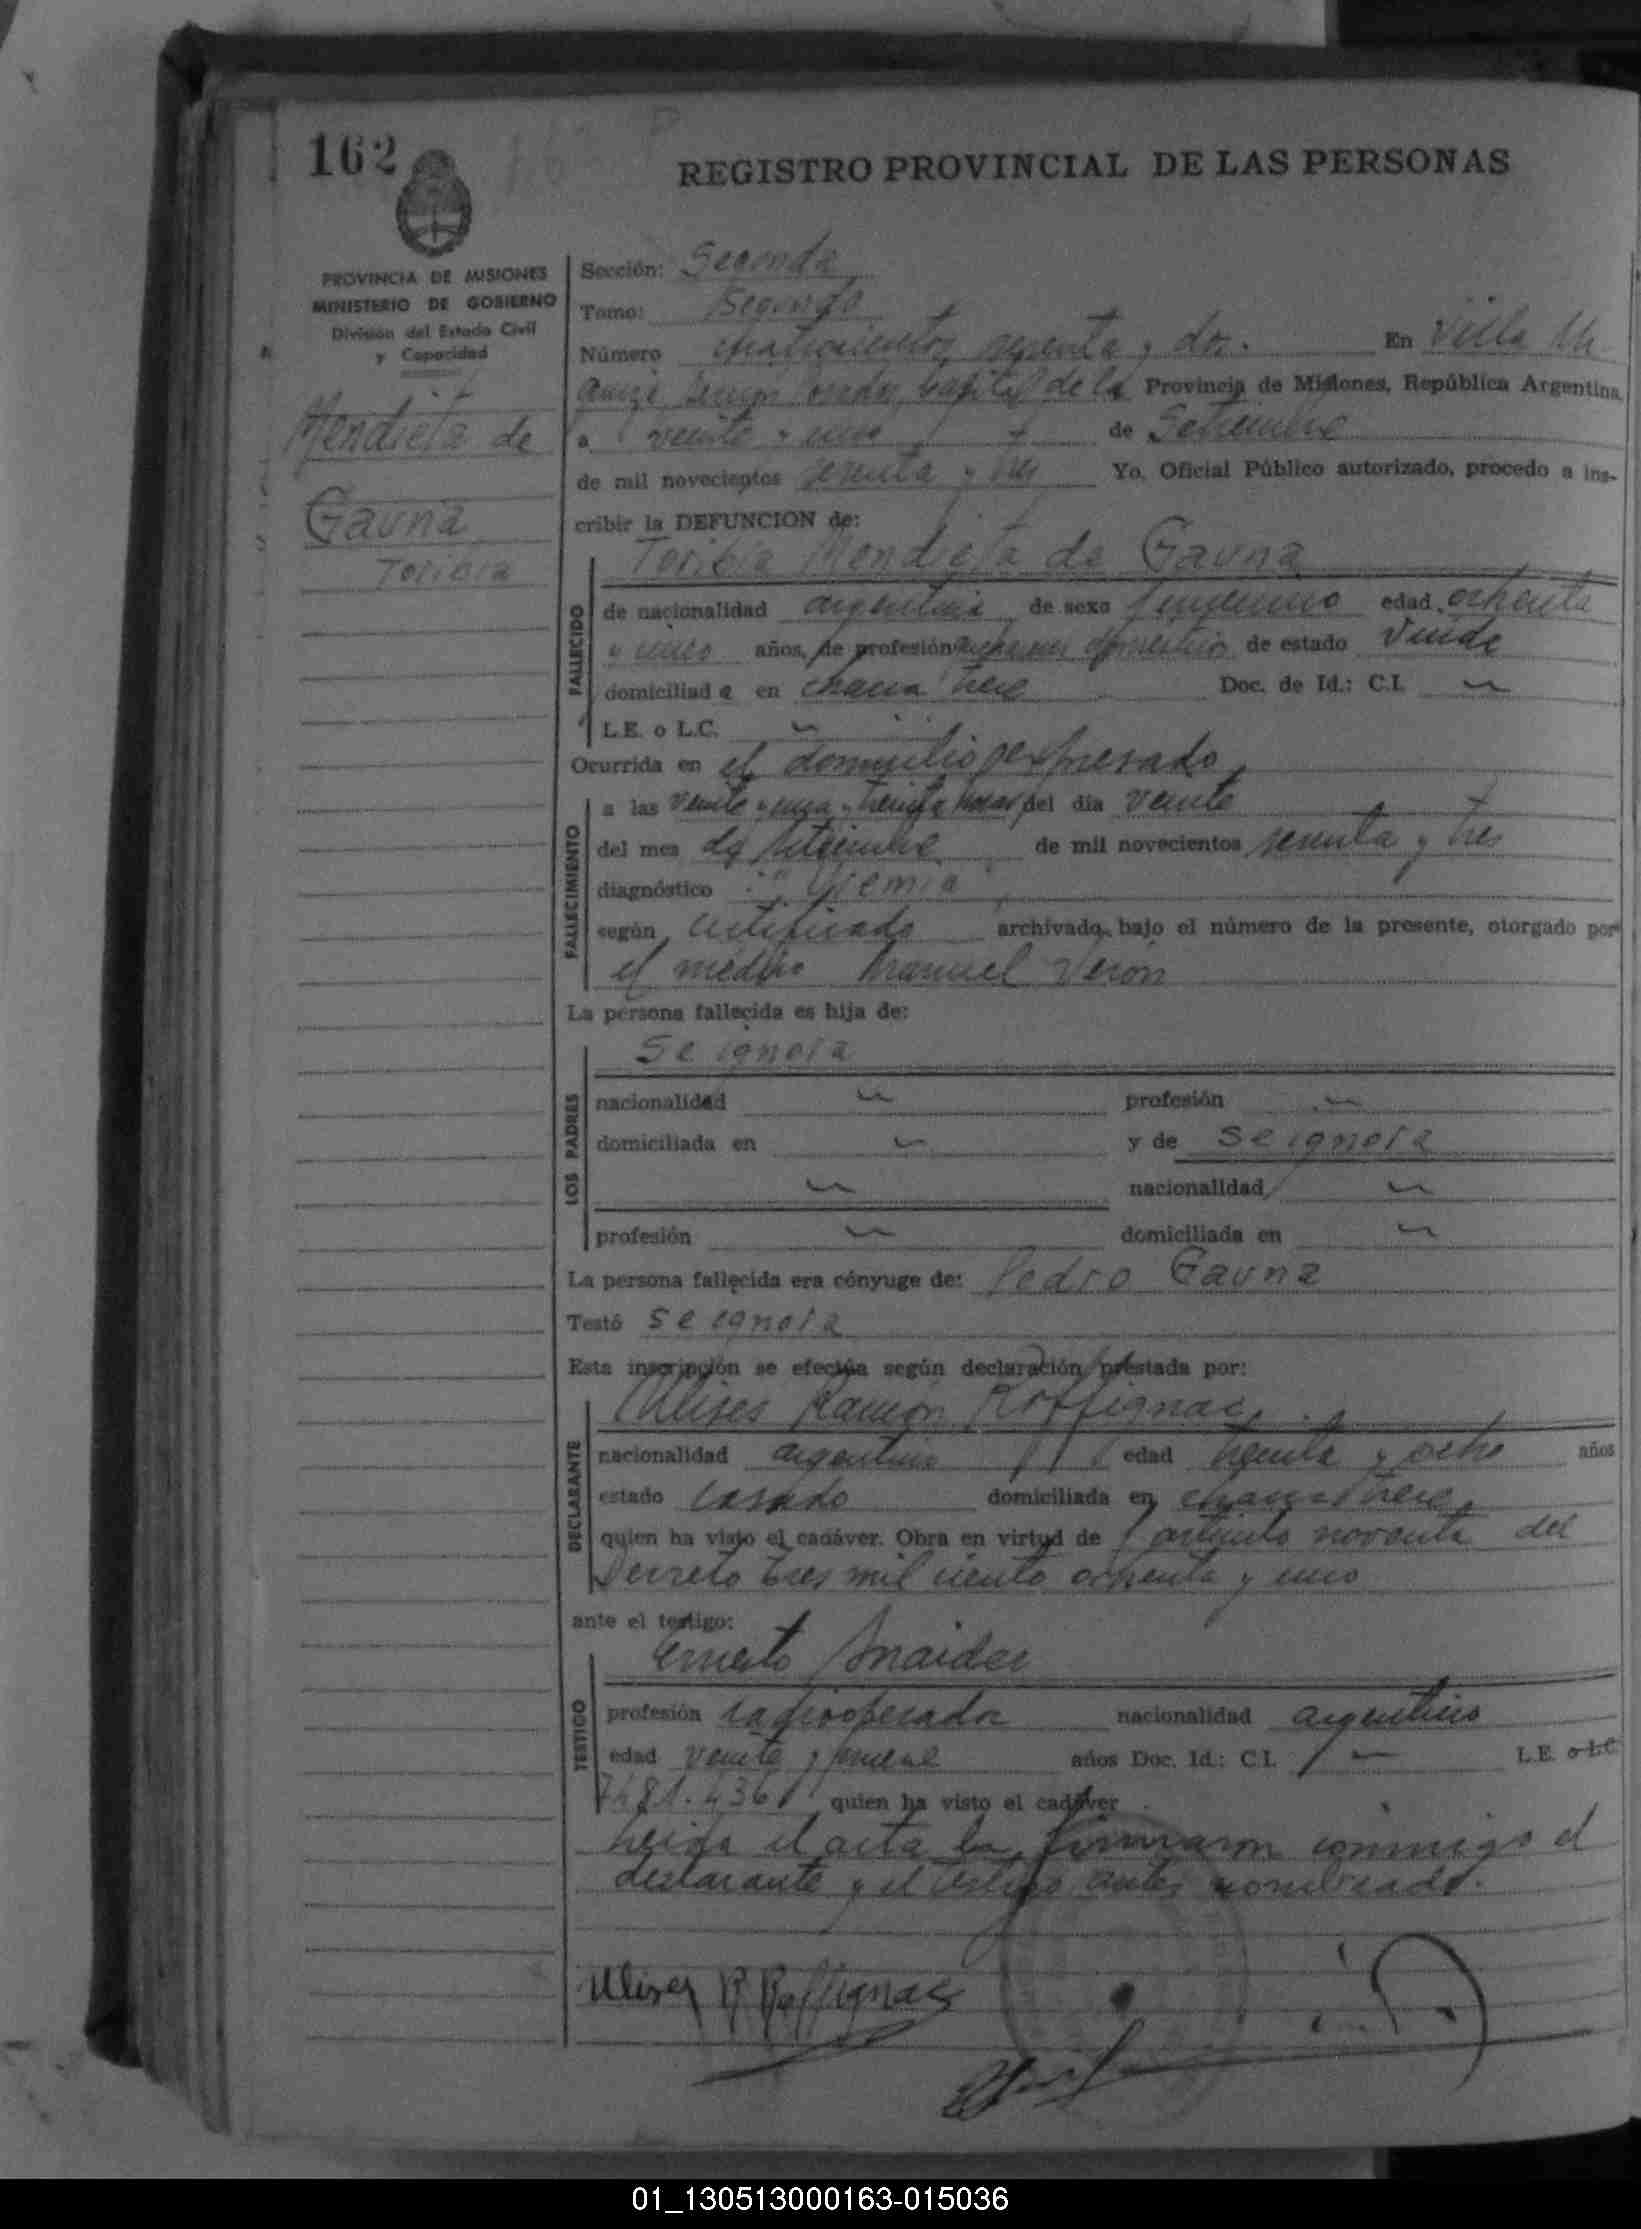 162
REGISTRO PROVINCIAL DE LAS PERSONAS
PROVINCIA DE MISIONES
MINISTERIO DE GOBIERNO
División del Estado Civil
y Capacidad
Mendieta de
Gauna
Toribia
Sección: Segunda
Tomo: Segundo
Número cuatrocientos sesenta y dos. En Villa
Capital de la Provincia de Misiones, República Argentina,
a veinte y uno de Setiembre
de mil novecientos sesenta y tres Yo, Oficial Público autorizado, procedo a ins-
cribir la DEFUNCION de:
Toribia Mendieta de Gauna
FALLECIDO
de nacionalidad argentina de sexo femenino edad ochenta
y cinco años, de profesión domésticos de estado Viuda
domiciliad a en chacra trece Doc. de Id.: C.I. ~
L.E. o L.C. ~
Ocurrida en el domicilio expresado
FALLECIMIENTO
a las veinte y una y treinta horas del día veinte
del mes de setiembre de mil novecientos sesenta y tres
diagnóstico : "Uremia"
según certificado archivado, bajo el número de la presente, otorgado por
el médico Manuel Verón
La persona fallecida es hija de:
LOS PADRES
Se ignora
nacionalidad ~ profesión ~
domiciliada en ~ y de Se ignora
~ nacionalidad ~
profesión ~ domiciliada en ~
La persona fallecida era cónyuge de: Pedro Gauna
Testó Se ignora
Esta inscripción se efectúa según declaración prestada por:
DECLARANTE
Ulises Ramón Roffignac
nacionalidad argentino edad treinta y ocho años
estado casado domiciliada en chacra trece
quien ha visto el cadáver. Obra en virtud de artículo noventa del
Decreto tres mil ciento ochenta y cinco
ante el testigo:
TESTIGO
Ernesto Snaider
profesión radiooperador nacionalidad argentino
edad veinte y nueve años Doc. Id.: C.I. — L.E. o L.C.
7481.436 quien ha visto el cadáver
Leida el acta la firmaron conmigo el
declarante y el testigo antes nombrado.
Ulises R Roffignac
01_130513000163-015036